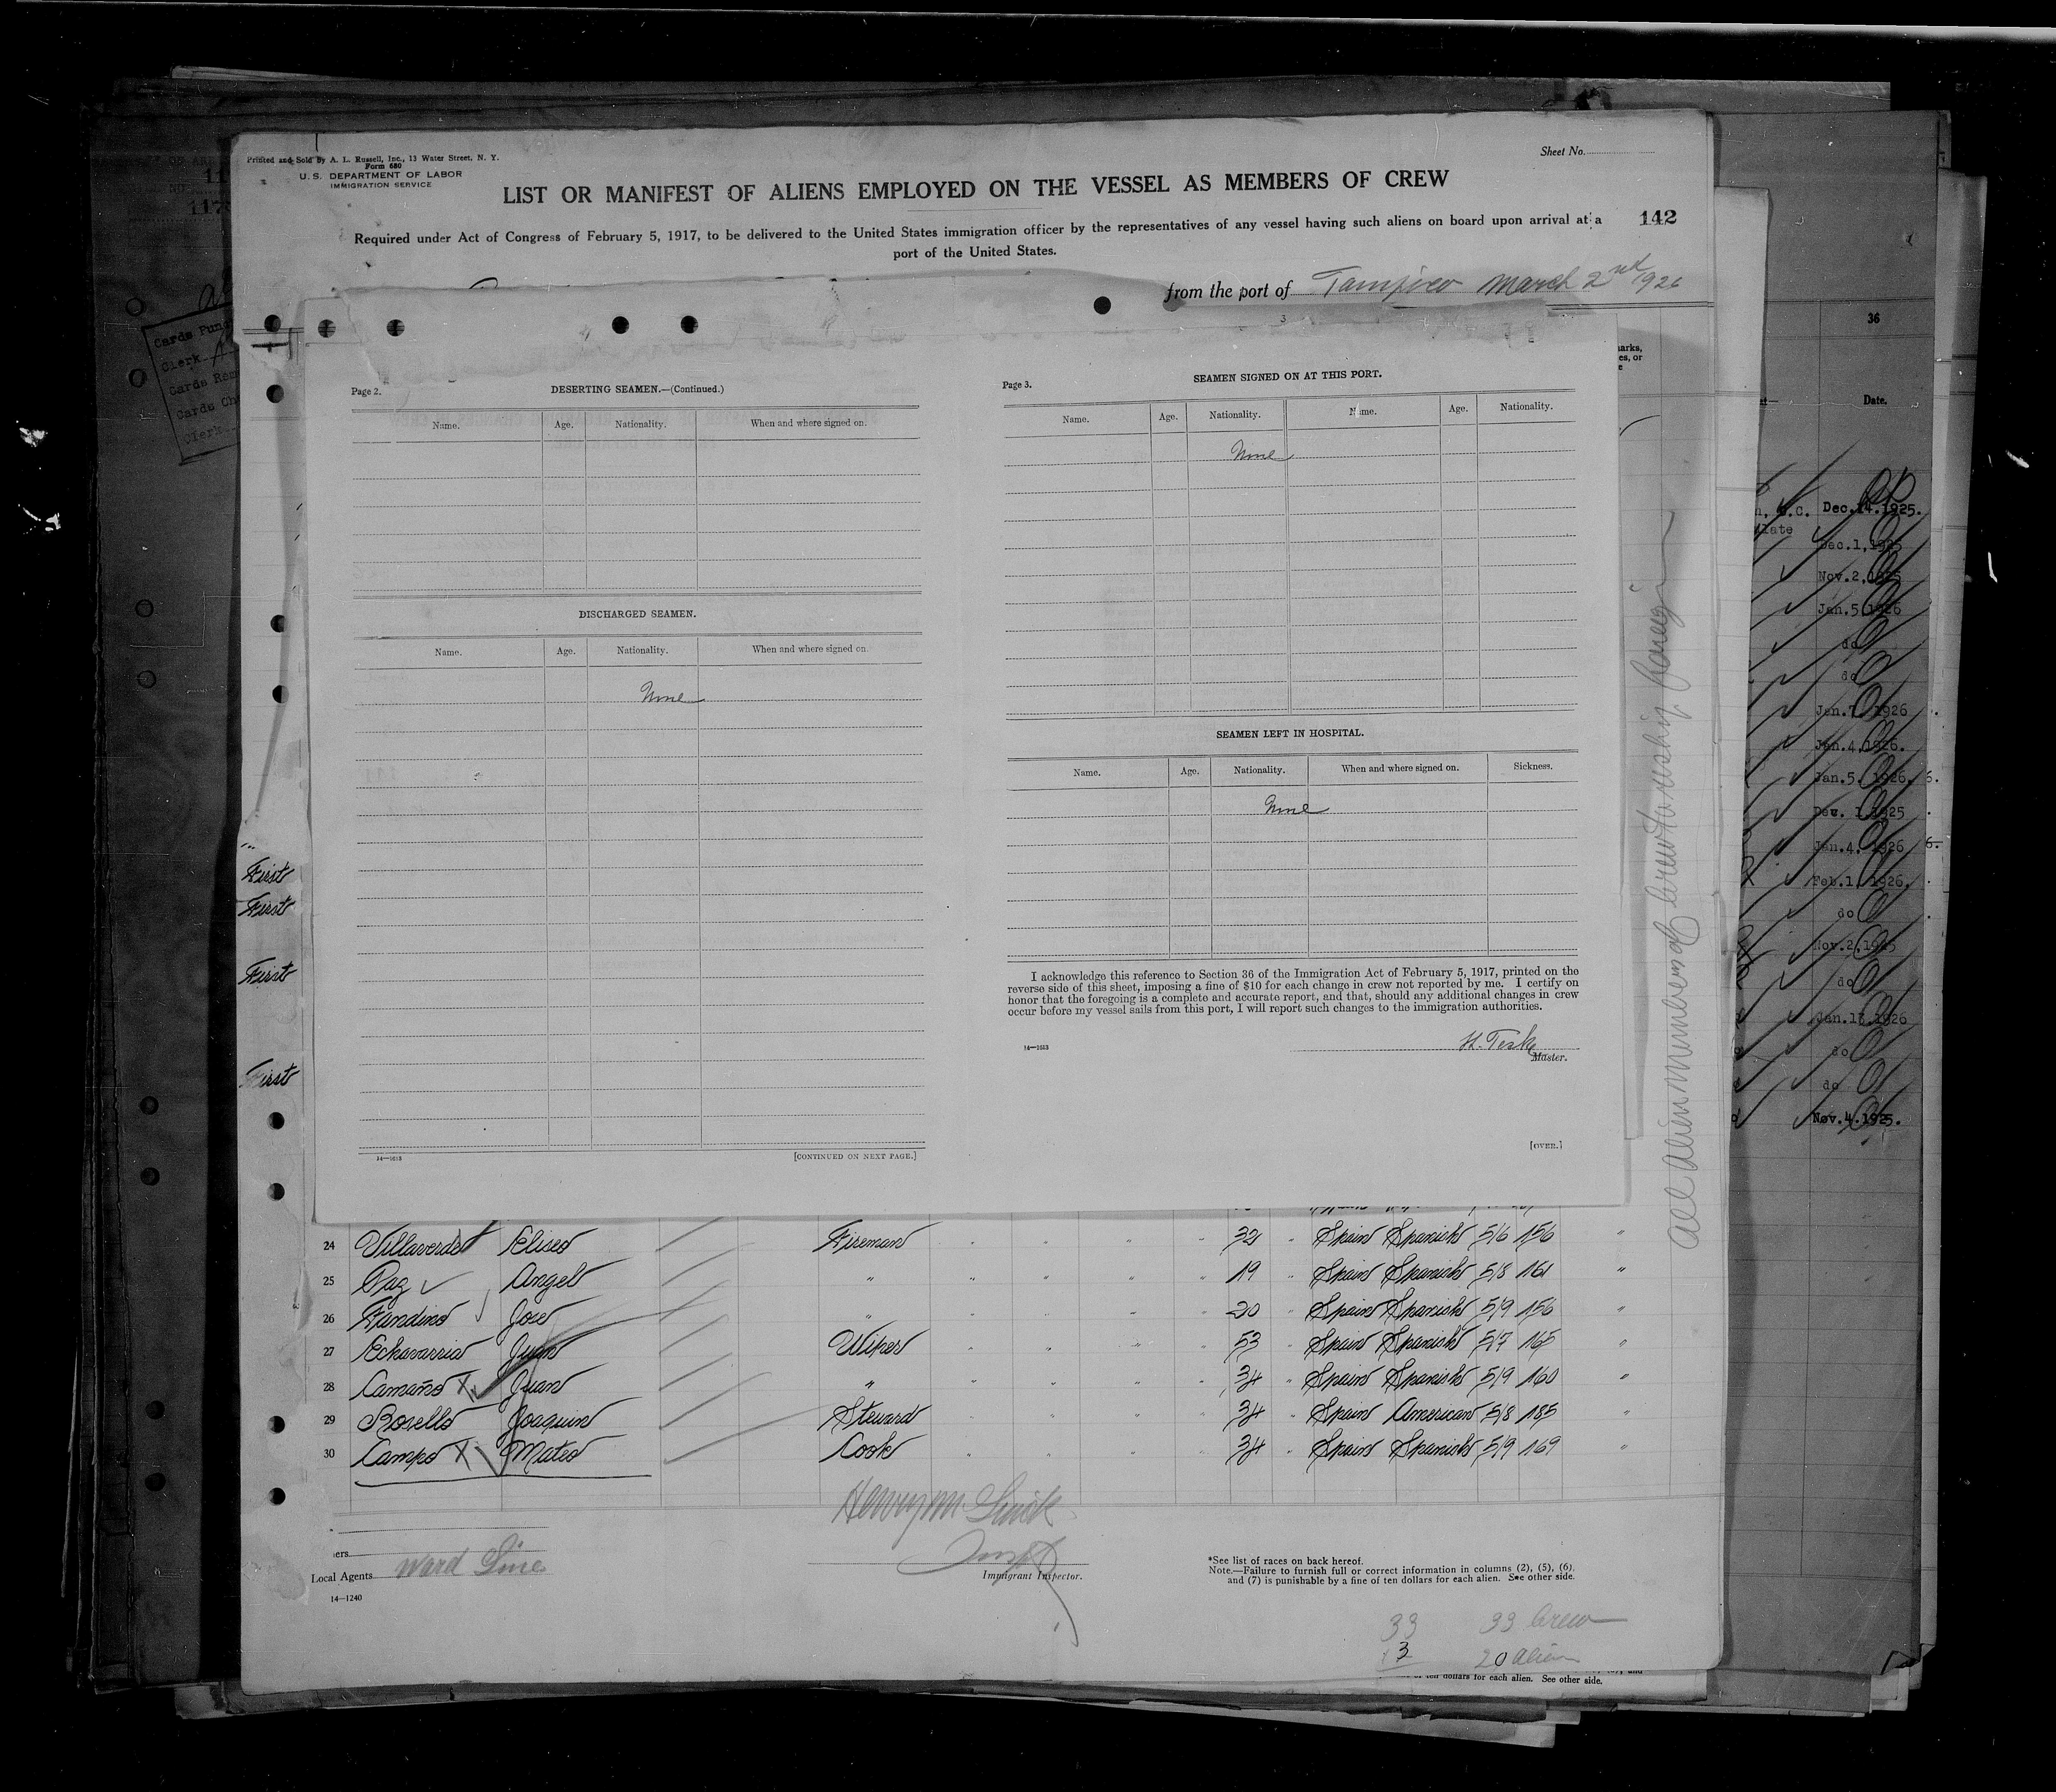 Printed and Sold by A. L. Russell, Inc., 13 Water Street, N. Y.
Form 680
U. S. DEPARTMENT OF LABOR
IMMIGRATION SERVICE
Sheet No.
LIST OR MANIFEST OF ALIENS EMPLOYED ON THE VESSEL AS MEMBERS OF CREW
142
Required under Act of Congress of February 5, 1917, to be delivered to the United States immigration officer by the representatives of any vessel having such aliens on board upon arrival at a
port of the United States.
from the port of Tampico March 2nd 1926
3
Page 2.
DESERTING SEAMEN.—(Continued.)
Name. Age. Nationality. When and where signed on.
DISCHARGED SEAMEN.
Name. Age. Nationality. When and where signed on.
None
14—1683
[CONTINUED ON NEXT PAGE.]
Page 3.
SEAMEN SIGNED ON AT THIS PORT.
Name. Age. Nationality. Name. Age. Nationality.
None
SEAMEN LEFT IN HOSPITAL.
Name. Age. Nationality. When and where signed on. Sickness.
None
I acknowledge this reference to Section 36 of the Immigration Act of February 5, 1917, printed on the
reverse side of this sheet, imposing a fine of $10 for each change in crew not reported by me. I certify on
honor that the foregoing is a complete and accurate report, and that, should any additional changes in crew
occur before my vessel sails from this port, I will report such changes to the immigration authorities.
14—1683
H. Teske
Master.
[OVER.]
First
First
First
First
24 Villaverde Eliseo Fireman " " " " 32 " Spain Spanish 5/6 156 "
25 Paz Angel " " " " " 19 " Spain Spanish 5/8 161 "
26 Fandino Jose " " " " " 20 " Spain Spanish 5/9 156 "
27 Echavarria Juan Wiper " " " " 53 " Spain Spanish 5/7 165 "
28 Camaño X Juan " " " " " 34 " Spain Spanish 5/9 160 "
29 Rosello Joaquin Steward " " " " 34 " Spain American 5/8 185 "
30 Campo X Mateo Cook " " " " 34 " Spain Spanish 5/9 169 "
Local Agents Ward Line
14—1240
Immigrant Inspector.
*See list of races on back hereof.
Note.—Failure to furnish full or correct information in columns (2), (5), (6),
and (7) is punishable by a fine of ten dollars for each alien. See other side.
33 33 Crew
13 20 Alien
ten dollars for each alien. See other side.
All alien members of crew
36
Date.
Dec.14.1925.
Dec.1,1925
Nov.2,1925
Jan.5,1926
do
do
Jan.7, 1926
Jan.4,1926.
Jan.5, 1926.
Dec. 1,1925
Jan.4, 1926
Feb.1, 1926.
do
Nov.2,1925
do
Jan.13,1926
do
do
Nov.4.1925.
Cards Punc
Clerk
Cards
Cards Ch
Clerk